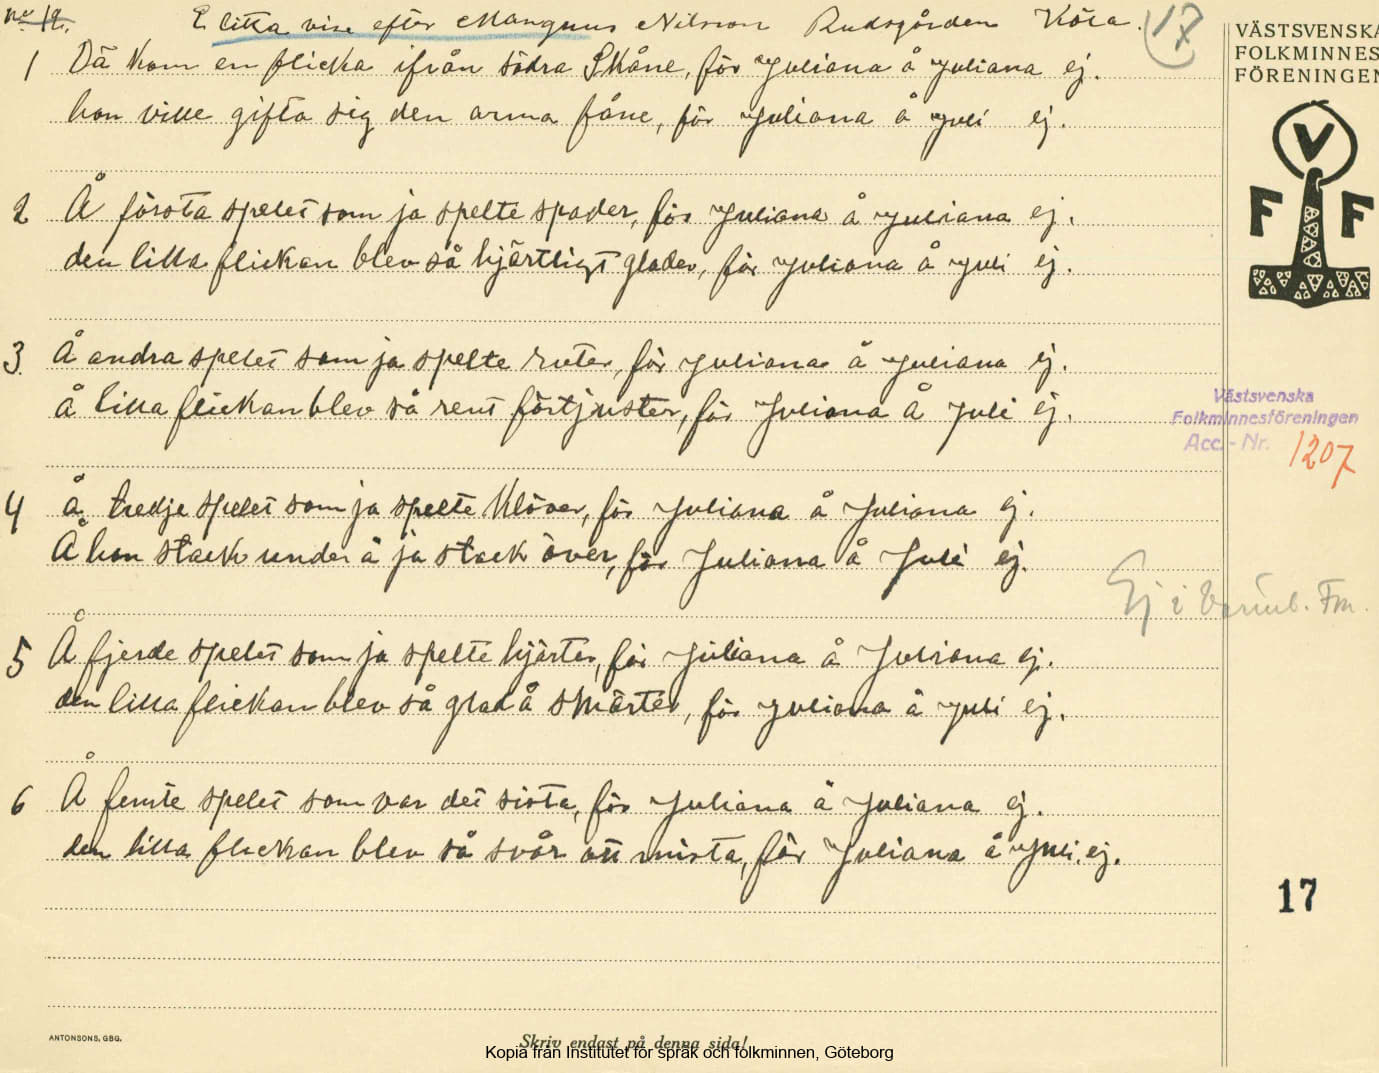 E litta vise efter Mangnus Nilsson Rudsgården Köla. 17
1 Dä kom en flicka ifrån södra Skåne, för Juliana å Juliana ej.
hon ville gifta sig den arma fåne, för Juliana å Juli ej.
2 Å första spelet som ja spelte spader, för Juliana å Juliana ej.
den litta flickan blev så hjärtligt glader, för Juliana å Juli ej.
3. Å andra spelet som ja spelte ruter, för Juliana å Juliana ej.
å litta flickan blev så rent förtjuster, för Juliana å Juli ej.
4 å tredje spelet som ja spelte klöver, för Juliana å Juliana ej.
Å hon stack under å ja stack över, för Juliana å Juli ej.
5 Å fjerde spelet som ja spelte hjärter, för Juliana å Juliana ej.
den litta flickan blev så glad å smärter, för Juliana å Juli ej.
6 Å femte spelet som var det sista, för Juliana å Juliana ej.
den litta flickan blev så svår att mista, för Juliana å Juli, ej.
VÄSTSVENSKA
FOLKMINNES
FÖRENINGEN
V
F F
Västsvenska
Folkminnesföreningen
Acc. - Nr. 1207
Ej i
17
ANTONSONS, GBG.
Skriv endast på denna sida!
Kopia från Institutet för språk och folkminnen, Göteborg